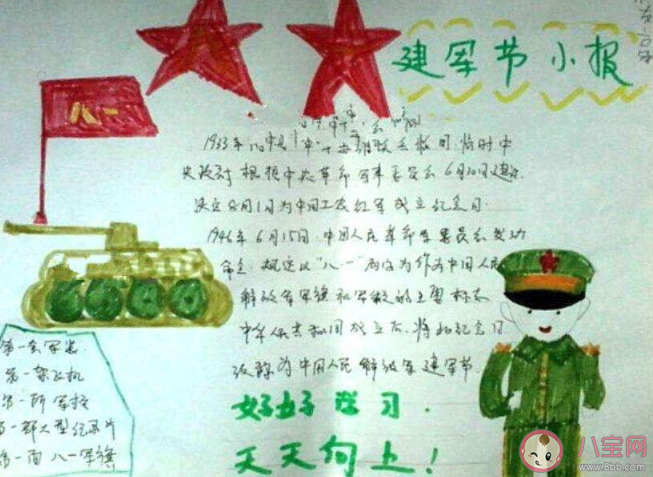 建军节小报
八一
1933年
央政府根据中央革命军事委员会6月30日建议
决定8月1日为中国工农红军成立纪念日
1946年6月15日,中国人民革命军事委员会发动
命令,规定以"八一"两字为作为中国人民
解放军军旗和军徽的主要标志
中华人民共和国成立后,将此纪念日
改称为中国人民解放军建军节
第一套军装
第一架飞机
第一所军校
第一部大型纪录片
第一面八一军旗
好好学习.
天天向上!
八宝网
www.8bb.com